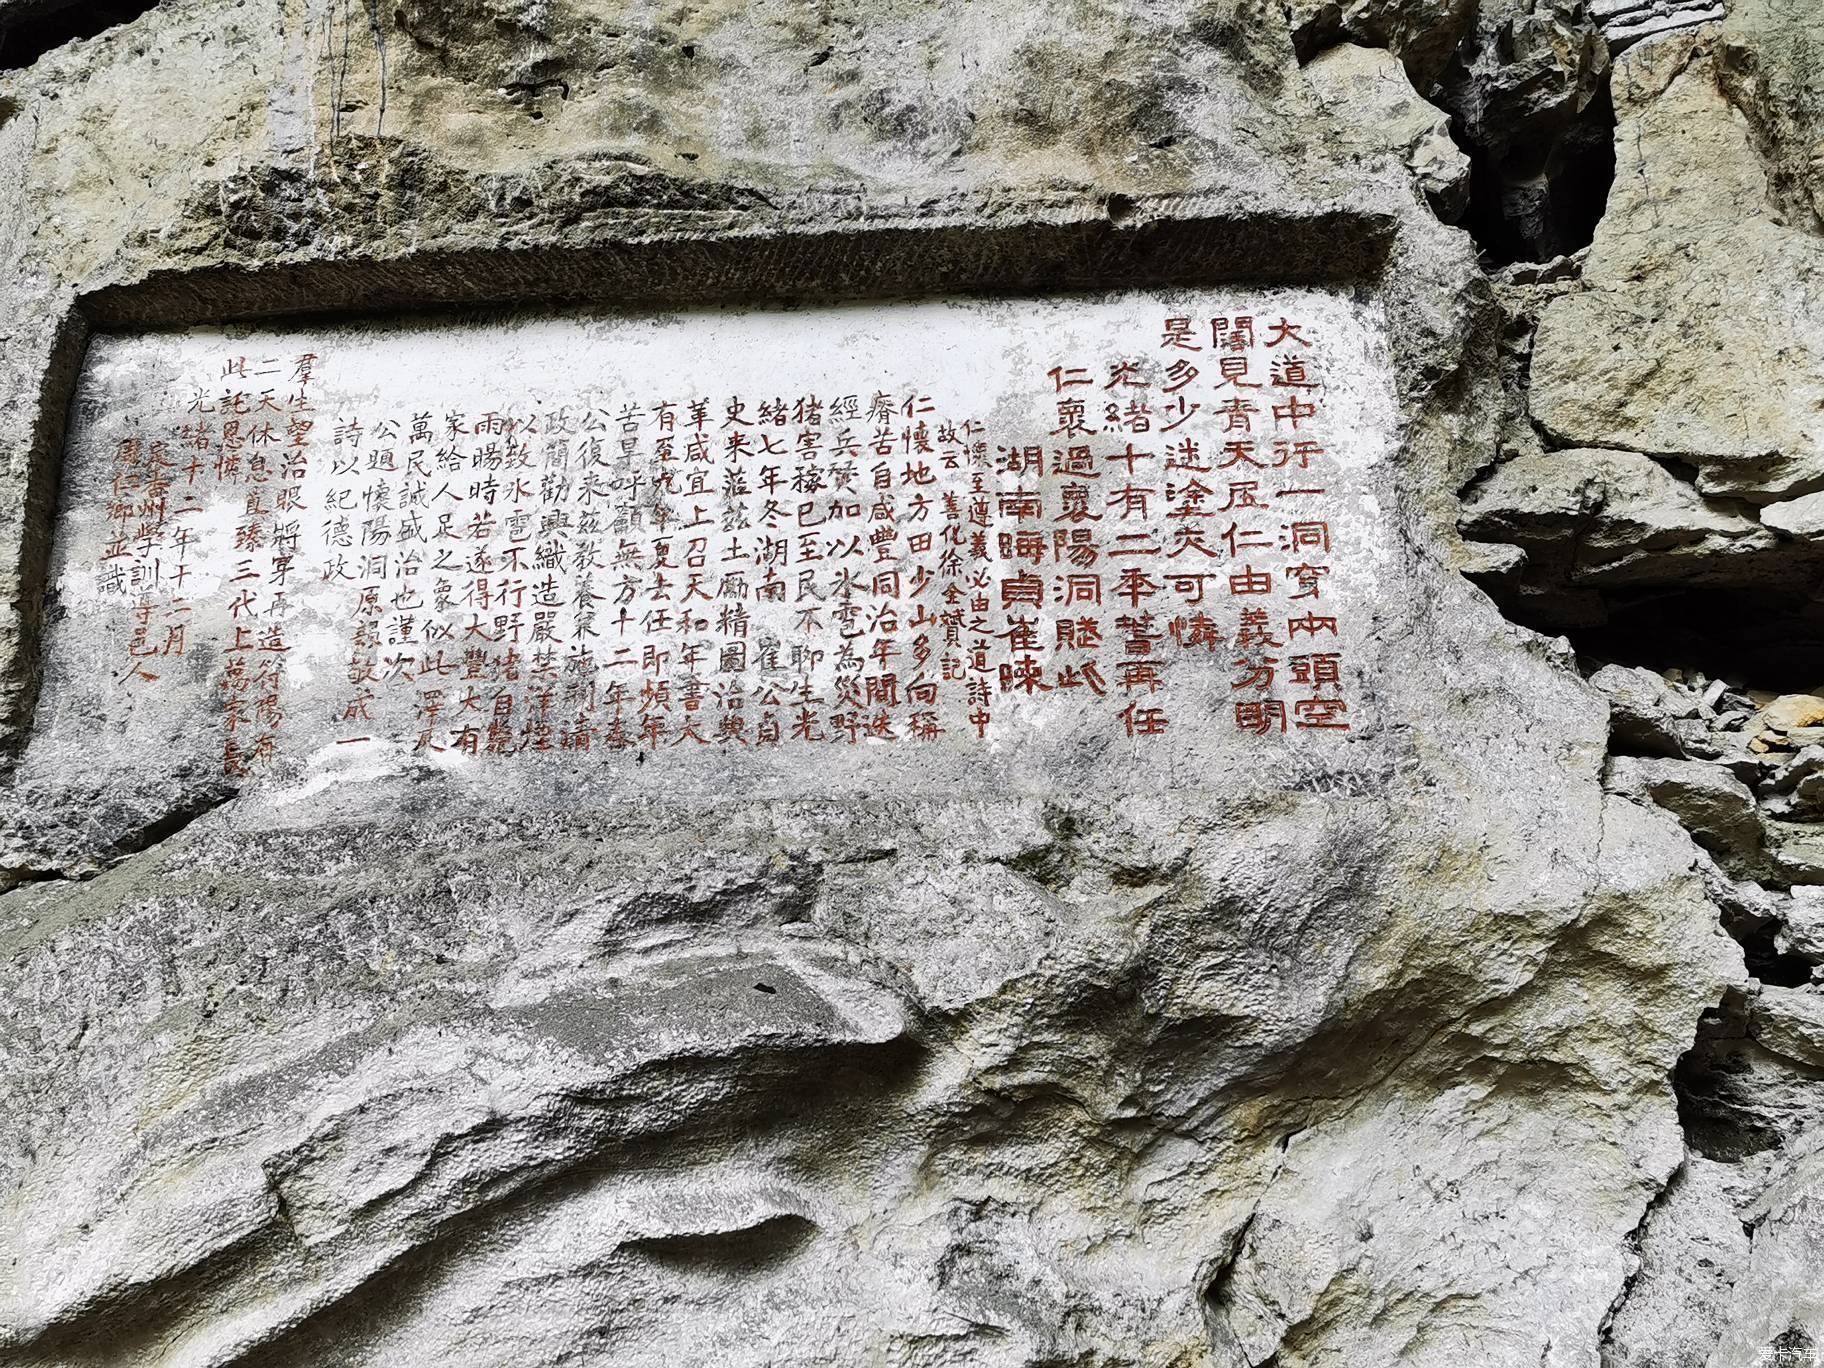 大道中行一洞穿兩頭空
闊見青天居仁由義分明
是多少迷塗实可憐
光緒十有二年嘗再任
仁褱過褱陽洞賦此
湖南晦貞崔暕
仁懷至遵義必由之道詩中
故云 善化徐全斌記
仁懷地方田少山多向稱
瘠苦自咸豐同治年間迭
經兵燹加以氷雹為災野
猪害稼已至民不聊生光
緒七年冬湖南 崔公自
史来蒞茲土勵精圖治與
革咸宜上召天和年書大
有至九年夏去任即頻年
苦旱呼籲無方十二年春
公復来茲教養寀施利濬
政簡勸興織造嚴禁洋煙
以致氷雹不行野猪自斃
雨暘時若遂得大豐大有
家給人足之象似此澤及
萬民誠盛治也謹次
公題懷陽洞原韻敬成一
詩以紀德政
羣生望治眼將穿再造符陽有
二天休息爰臻三代上萬家長
此託恩憐
光緒十二年十二月
吉州學訓導邑人
周仁卿並識
爱卡汽车